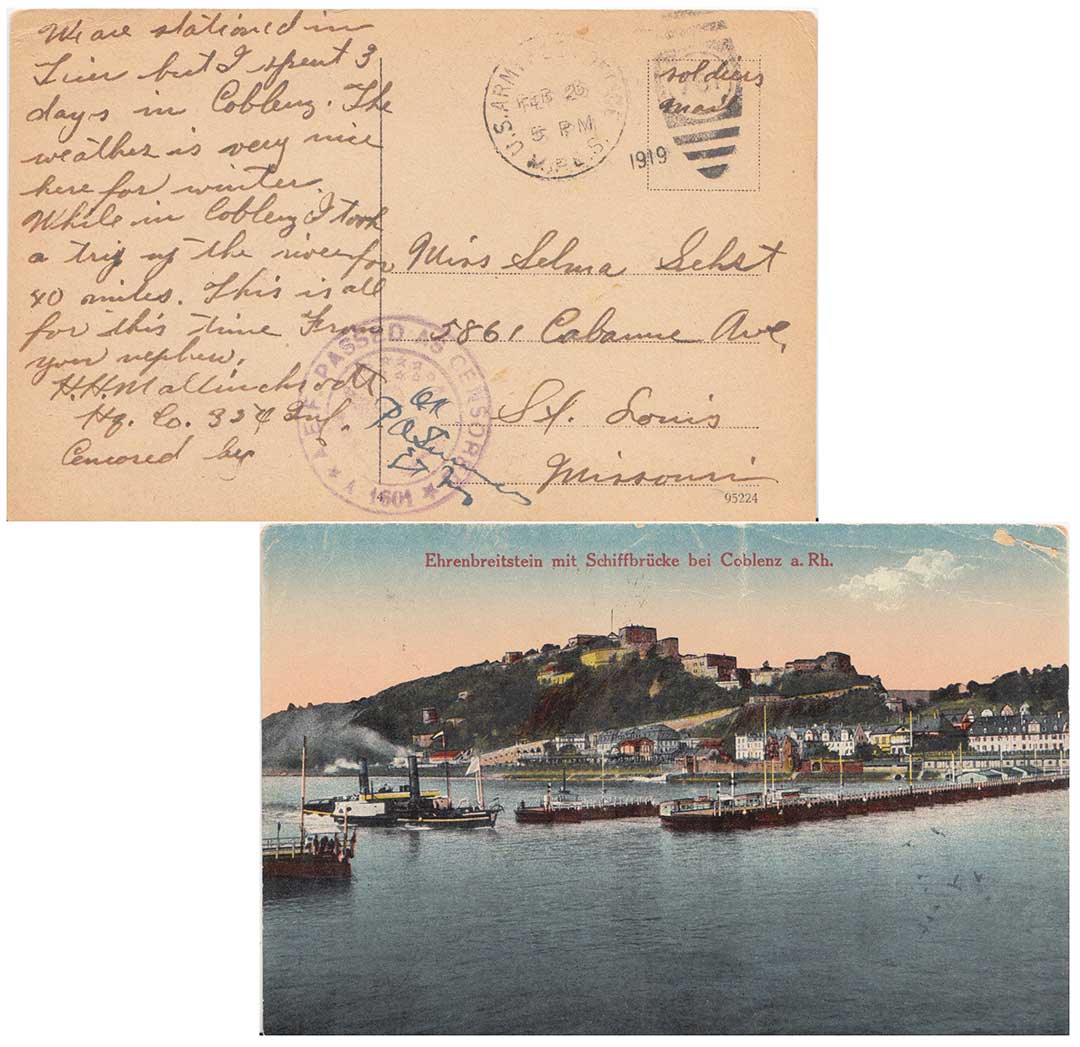 We are stationed in
Trier but I spent 3
days in Coblenz. The
weather is very nice
here for winter.
While in Coblenz I took
a trip up the river for
40 miles. This is all
for this time From
your nephew.
H.H. Mallinckrodt
Hq. Co. 354 Inf.
Censored by
U.S. ARMY
M.P.E.S.
FEB 26
5 PM
1919
soldiers
mail
Miss Selma Sehrt
5861 Cabanne Ave,
St. Louis
Missouri
A.E.F. PASSED AS CENSORED
A 1601
OK
95224
Ehrenbreitstein mit Schiffbrücke bei Coblenz a. Rh.